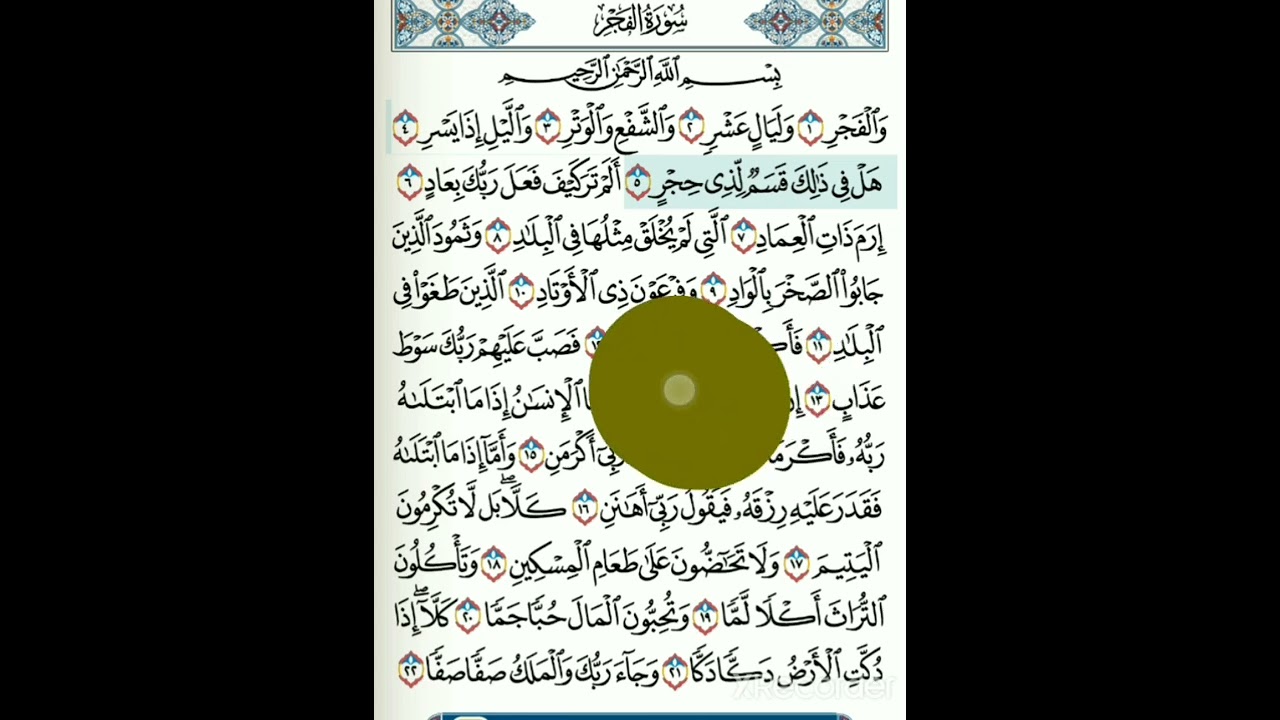 سُورَةُ الفَجْرِ
بِسْمِ اللَّهِ الرَّحْمَٰنِ الرَّحِيمِ
وَالْفَجْرِ ١ وَلَيَالٍ عَشْرٍ ٢ وَالشَّفْعِ وَالْوَتْرِ ٣ وَاللَّيْلِ إِذَا يَسْرِ ٤
هَلْ فِي ذَٰلِكَ قَسَمٌ لِّذِي حِجْرٍ ٥ أَلَمْ تَرَ كَيْفَ فَعَلَ رَبُّكَ بِعَادٍ ٦
إِرَمَ ذَاتِ الْعِمَادِ ٧ الَّتِي لَمْ يُخْلَقْ مِثْلُهَا فِي الْبِلَٰدِ ٨ وَثَمُودَ الَّذِينَ
جَابُوا الصَّخْرَ بِالْوَادِ ٩ وَفِرْعَوْنَ ذِي الْأَوْتَادِ ١٠ الَّذِينَ طَغَوْا فِي
الْبِلَٰدِ ١١ فَصَبَّ عَلَيْهِمْ رَبُّكَ سَوْطَ
عَذَابٍ ١٣ الْإِنسَٰنُ إِذَا مَا ابْتَلَىٰهُ
رَبُّهُۥ رَبِّي أَكْرَمَنِ ١٥ وَأَمَّا إِذَا مَا ابْتَلَىٰهُ
فَقَدَرَ عَلَيْهِ رِزْقَهُۥ فَيَقُولُ رَبِّي أَهَٰنَنِ ١٦ كَلَّا ۖ بَل لَّا تُكْرِمُونَ
الْيَتِيمَ ١٧ وَلَا تَحَٰٓضُّونَ عَلَىٰ طَعَامِ الْمِسْكِينِ ١٨ وَتَأْكُلُونَ
التُّرَاثَ أَكْلًا لَّمًّا ١٩ وَتُحِبُّونَ الْمَالَ حُبًّا جَمًّا ٢٠ كَلَّآ ۖ إِذَا
دُكَّتِ الْأَرْضُ دَكًّا دَكًّا ٢١ وَجَآءَ رَبُّكَ وَالْمَلَكُ صَفًّا صَفًّا ٢٢
XRecorder